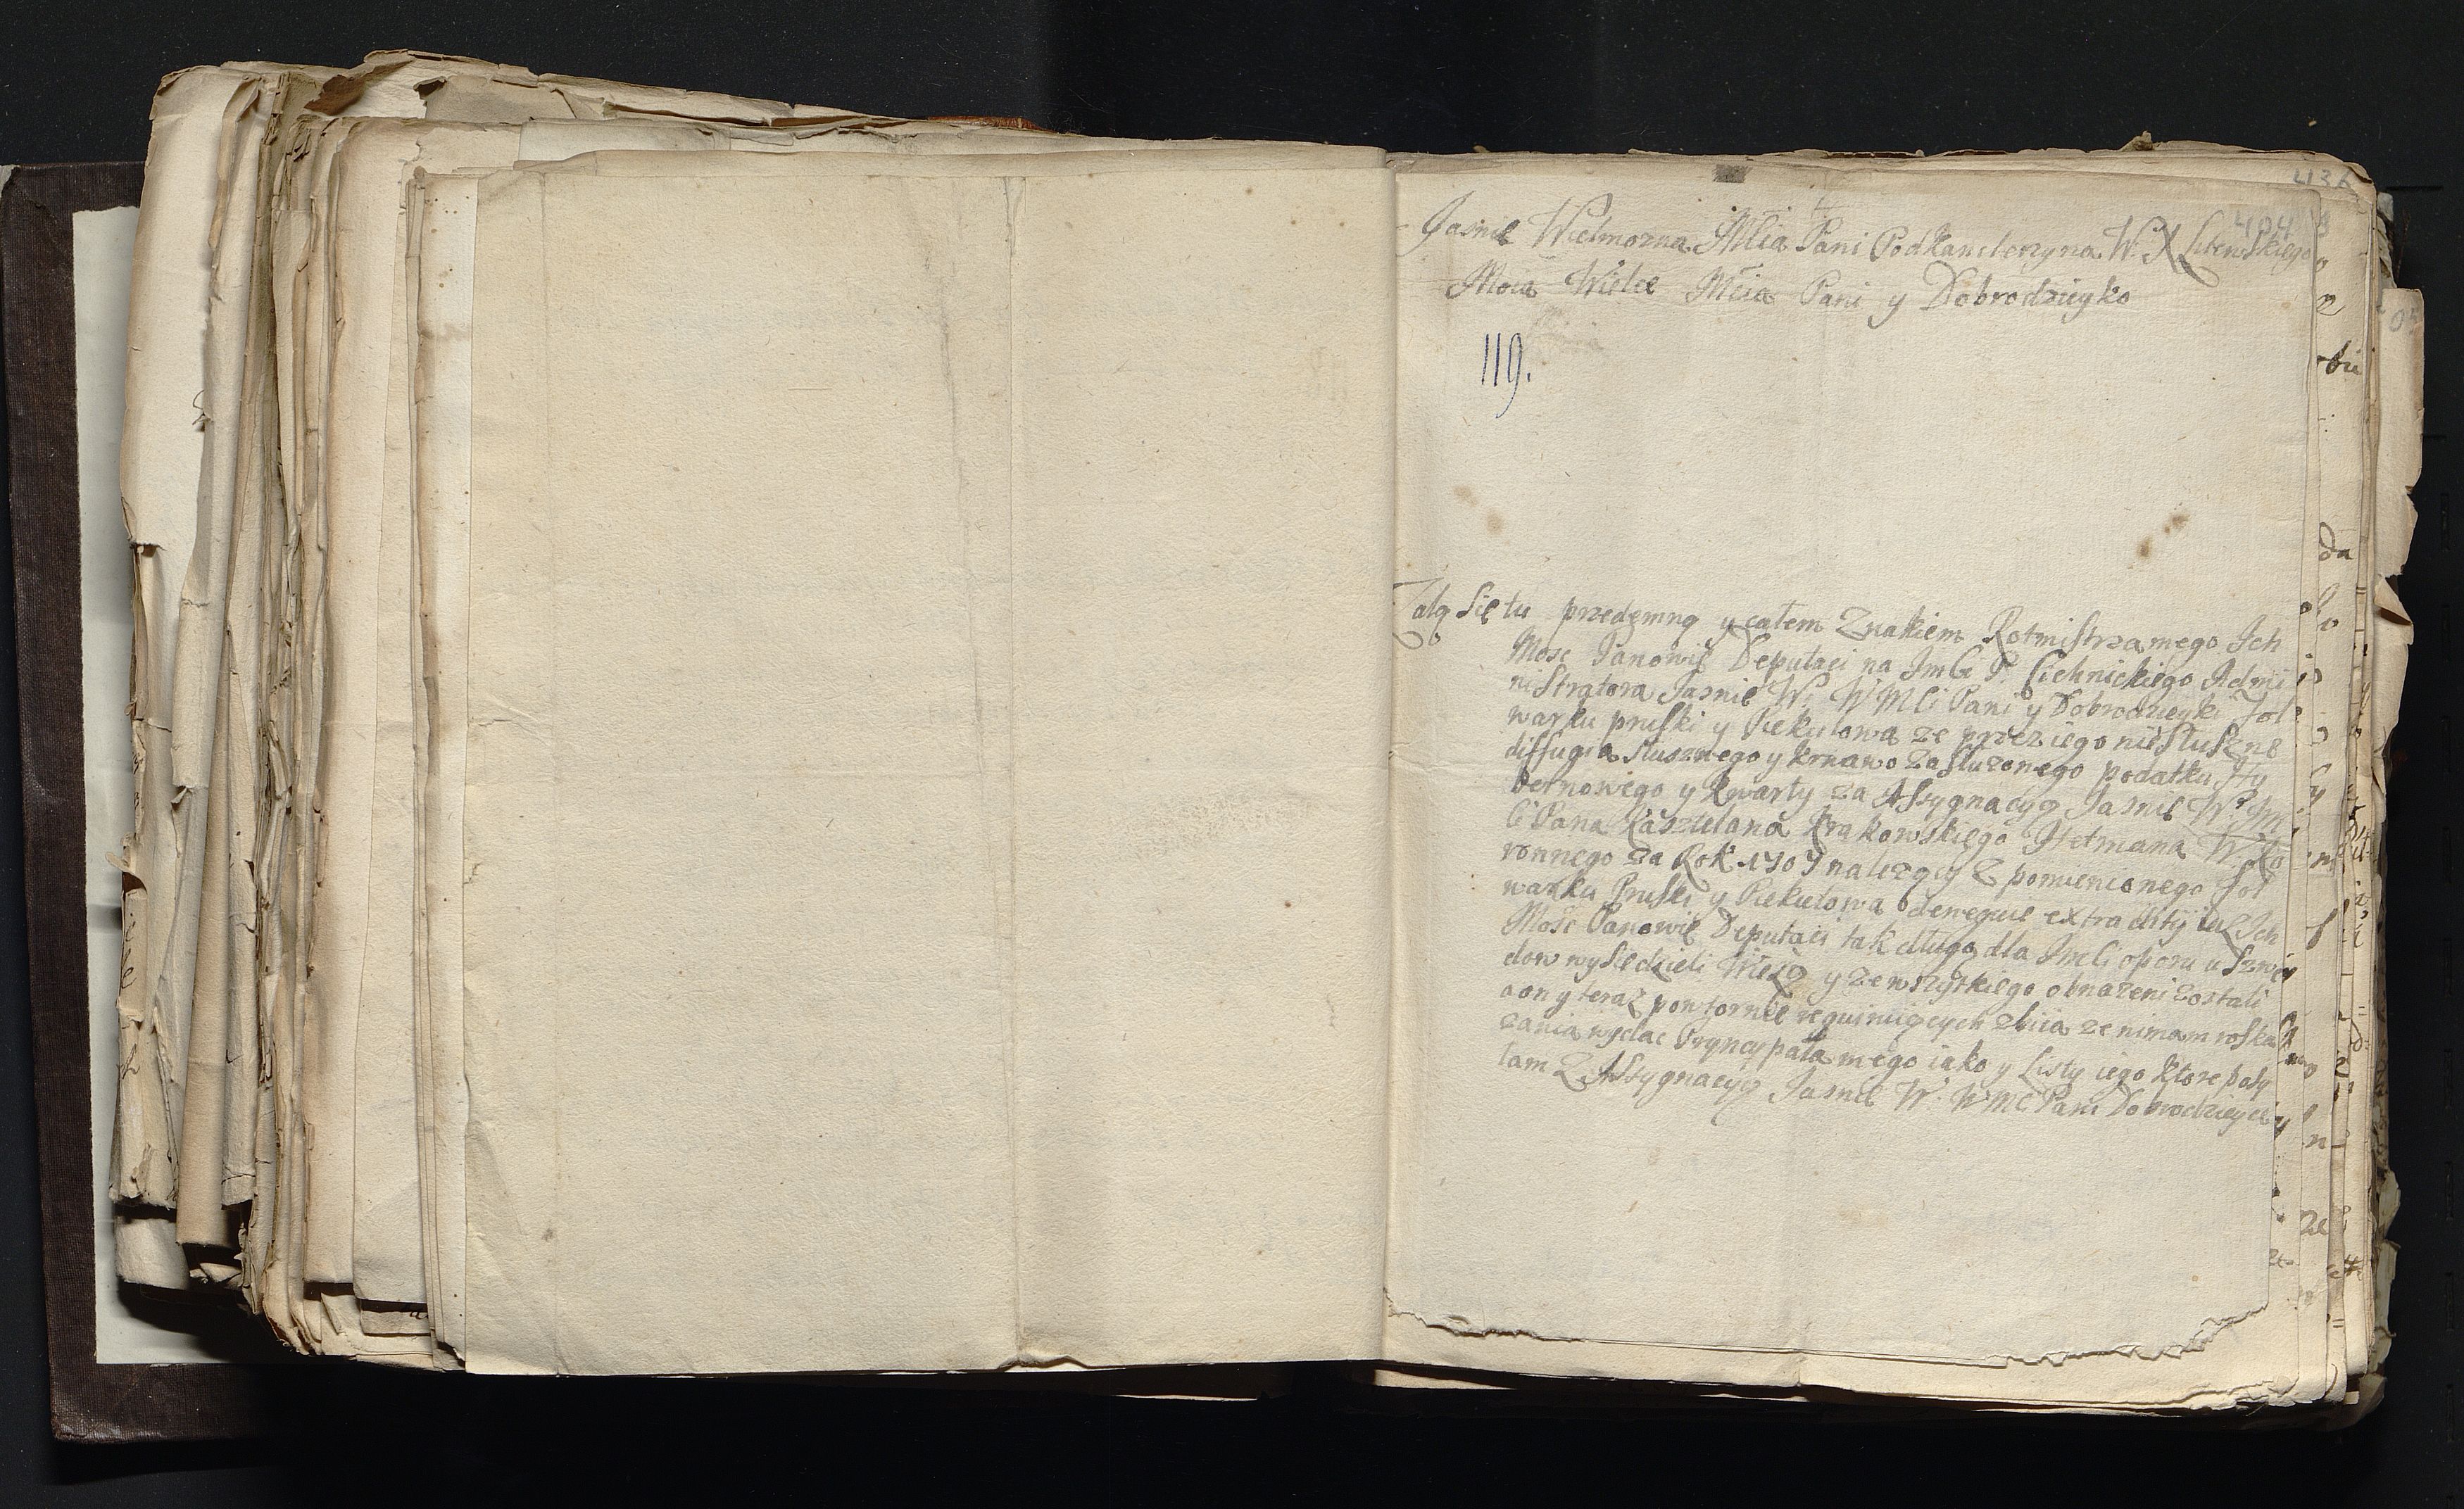 436
404
Jasnie Wielmozna Mscia Pani Podkanclerzyna W. X Litewskiego
Moia Wielce Mscia Pani y Dobrodzieyko
119.
Zalą się tu przedemną y całem Znakiem Rotmistrza mego Ich
Mosc Panowie Deputaci na ImCi P. Cichnickiego Admi
nistratora Jasnie W. WMCi Pani y Dobrodzieyki Fol
warku pruski y Piekutowa ze przez iego niesłuszne
diffugia słusznego y krwawo zasłuzonego podatku Hy
bernowego y kwarty za Assygnacyą Jasnie W. Im
Ci Pana Kasztelana Krakowskiego Hetmana W. Ko
ronnego za Rok 1707 należący z pomienionego Fol
warku Pruski y Piekutowa deneguie extradity iuz Ich
Mosc Panowie Deputaci tak długo dla ImCi oporu u Szwe
dow wysiedzieli Wiezą y ze wszytkiego obnazeni zostali
a on y teraz powtornie requiruiących zbiia ze nimam roska
zania wydac Pryncypała mego iako y Listy iego ktore posy
łam z Assygnacyią Jasnie W. WMC Pani Dobrodzieyce